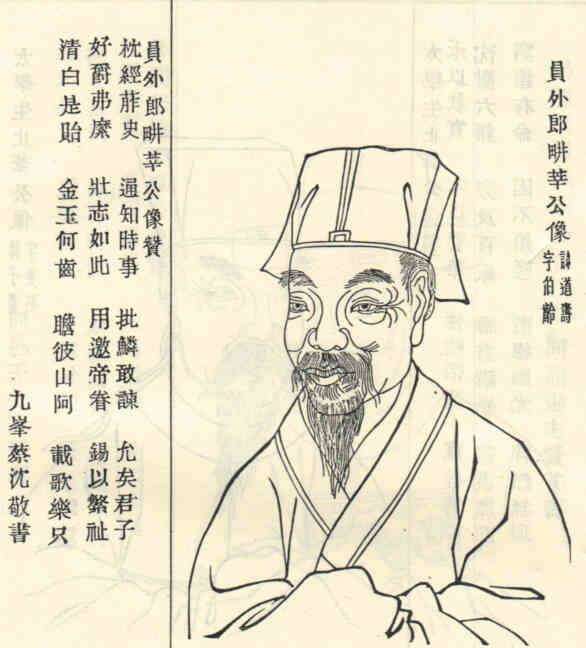 員外郎畊莘公像
諱道壽
字伯齡
員外郎畊莘公像贊
枕經葄史 通知時事 批鱗敢諫 允矣君子
好爵弗縻 壯志如此 用邀帝眷 錫以繁祉
清白是貽 金玉何齒 瞻彼山阿 載歌樂只
九峯蔡沈敬書